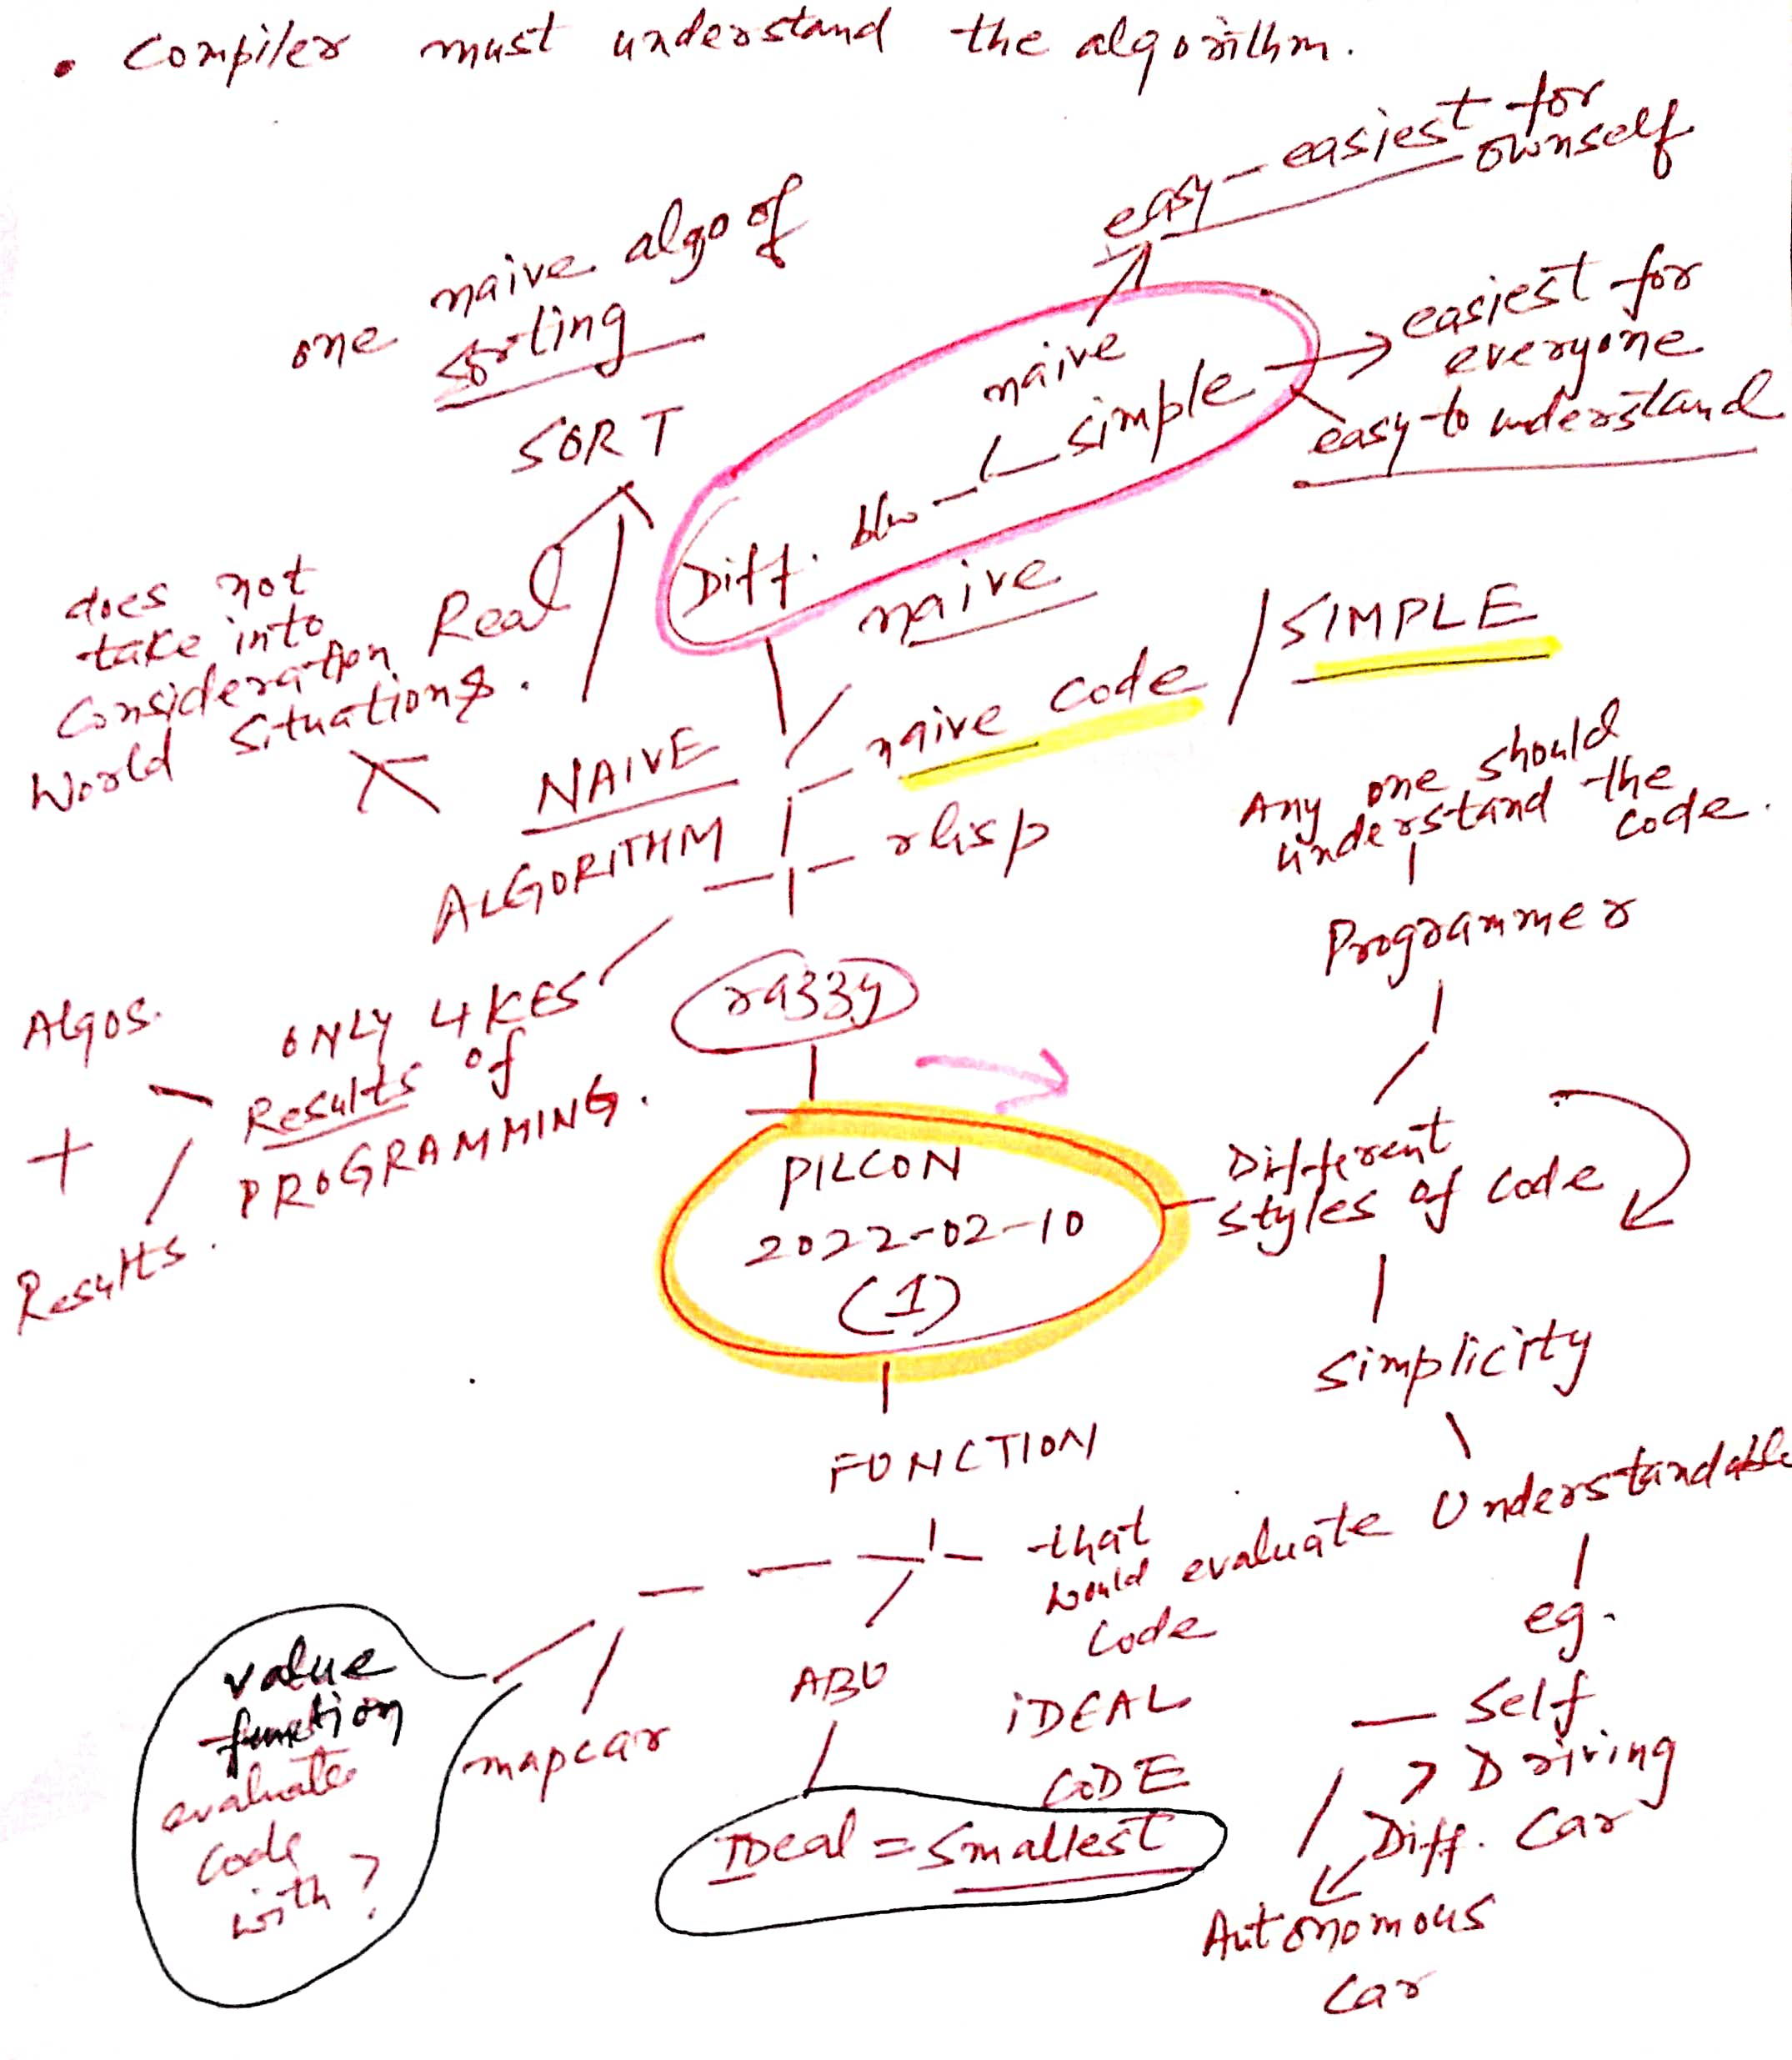 • Compiler must understand the algorithm.
easy - easiest for
ownself
one naive algo of
sorting
SORT
naive
simple
Diff. b/w
easiest for
everyone
easy to understand
does not
take into
Consideration Real
World Situations.
naive
naive code / SIMPLE
NAIVE
ALGORITHM
rlisp
Any one should
understand the
code.
Programmer
razzy
Algos.
+
Results.
ONLY LIKES
Results of
PROGRAMMING.
PILCON
2022-02-10
(1)
Different
styles of code
simplicity
Understandable
eg.
Self
Driving
Car
Diff.
Autonomous
Car
FUNCTION
that
would evaluate
code
IDEAL
CODE
ABU
IDeal = Smallest
mapcar
value
function
evaluate
code
with?